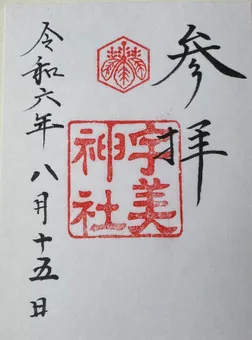 参拝
宇美
神社
令和六年八月十五日